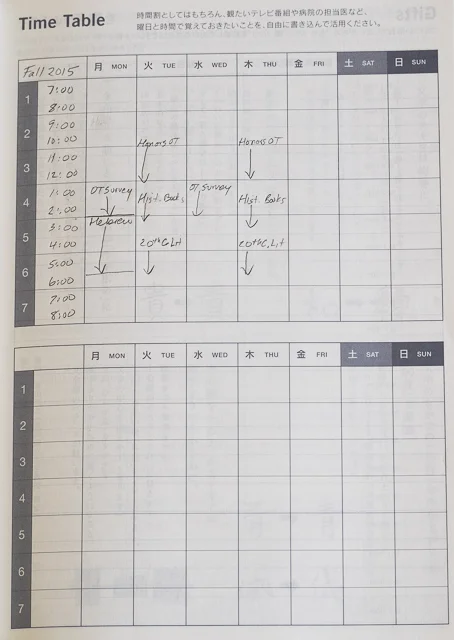 Time Table
時間割としてはもちろん、観たいテレビ番組や病院の担当医など、
曜日と時間で覚えておきたいことを、自由に書き込んで活用ください。
Fall 2015 月 MON 火 TUE 水 WED 木 THU 金 FRI 土 SAT 日 SUN
1 7:00
8:00
2 9:00
10:00 Honors OT Honors OT
3 11:00
12:00
4 1:00 OT Survey Hist. Books OT Survey Hist. Books
2:00
5 3:00 Hebrew
4:00 20th C. Lit 20th C. Lit
6 5:00
6:00
7 7:00
8:00
月 MON 火 TUE 水 WED 木 THU 金 FRI 土 SAT 日 SUN
1
2
3
4
5
6
7